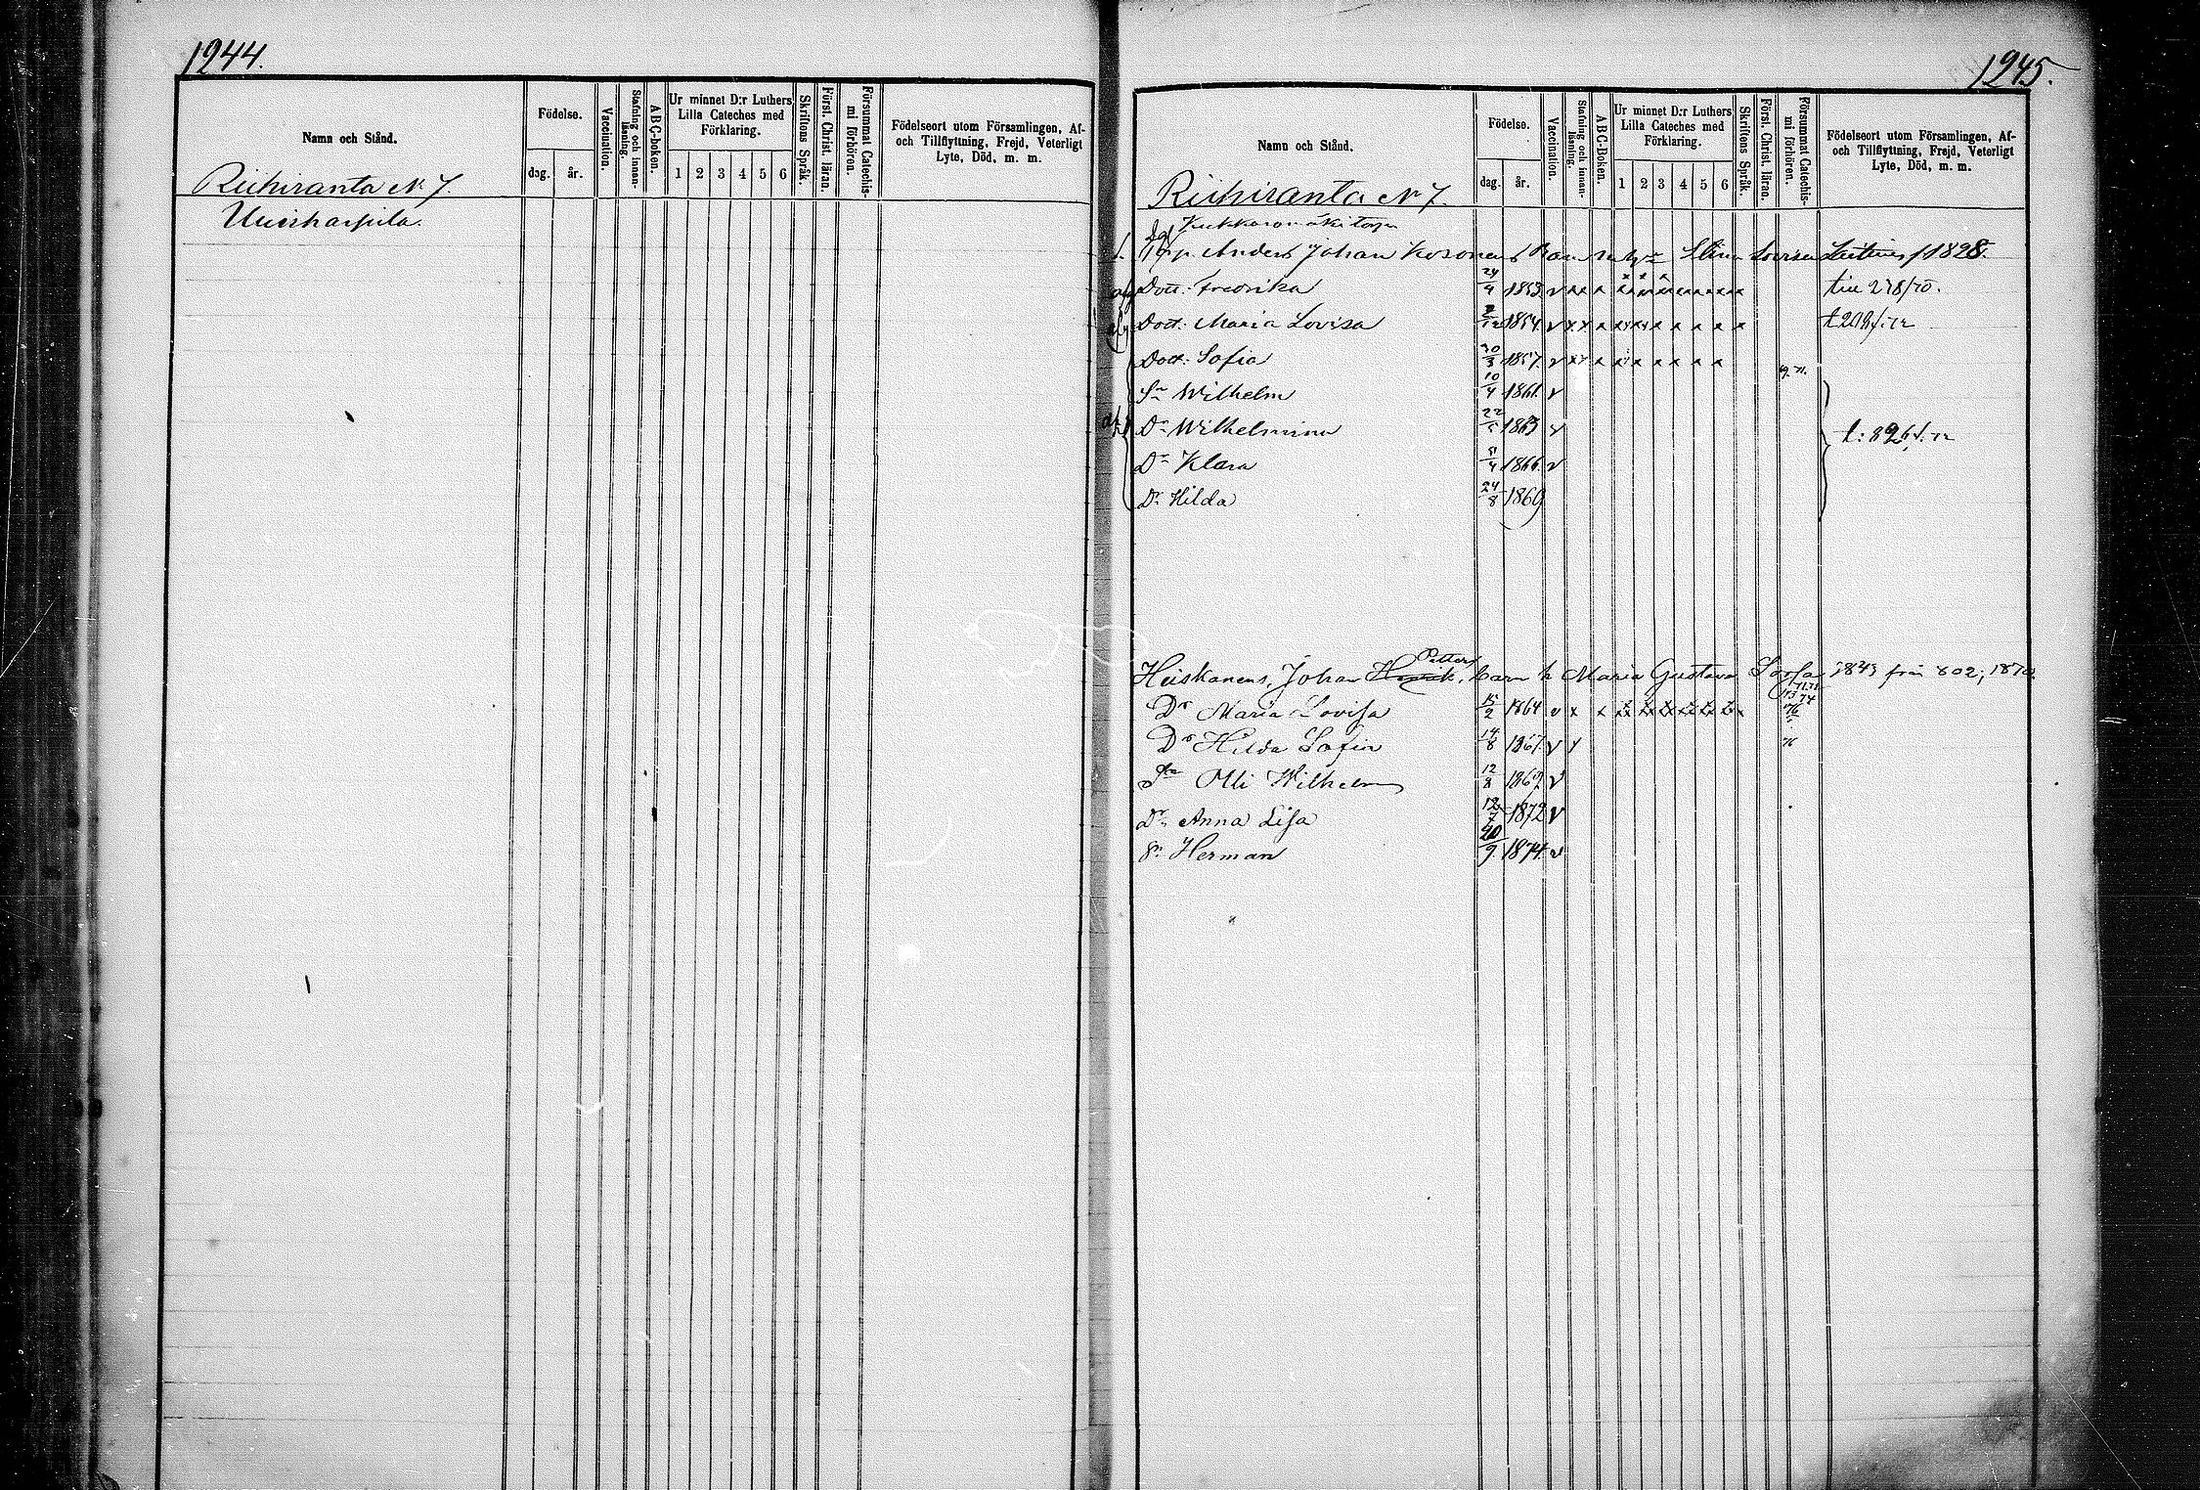 1244.
Namn och Stånd.
Födelse.
dag. år.
Vaccination.
Stafning och innan-läsning.
ABC-boken.
Ur minnet D:r Luthers Lilla Cateches med Förklaring.
1 2 3 4 5 6
Skriftens Språk.
Först. Christ. läran.
Försummat Catechis-mi förhören.
Födelseort utom Församlingen, Af-
och Tillflyttning, Frejd, Veterligt
Lyte, Död, m. m.
Riihiranta N 7.
Uusiharjula.
1245.
Namn och Stånd.
Födelse.
dag. år.
Vaccination.
Stafning och innan-läsning.
ABC-Boken.
Ur minnet D:r Luthers Lilla Cateches med Förklaring.
1 2 3 4 5 6
Skriftens Språk.
Först. Christ. läran.
Försummat Catechis-mi förhören.
Födelseort utom Församlingen, Af-
och Tillflyttning, Frejd, Veterligt
Lyte, Död, m. m.
Riihiranta N 7.
Anders Johan Kosonens Barn m Lovisa 1828.
Dott: Fredrika 24/4 1853 v till 278/70.
Dott: Maria Lovisa 1854. v
Dott: Sofia 30/3 1857. v
Sn Wilhelm 10/4 1861. v
Dr Wilhelmina 1863 v
Dr Klara 1866. v
Dr Hilda 24/8 1869
Heiskanens, Johan Henrik Petters, barn h Maria Gustava 1843 från 802; 1870
Dr Maria Lovisa 15/2 1864 v
Dr Hilda Sofia 14/8 1867. v
Sn Olli Wilhelm 12/8 1869 v
Dr Anna Lisa 1872 v
Sn Herman 20/9 1874. v